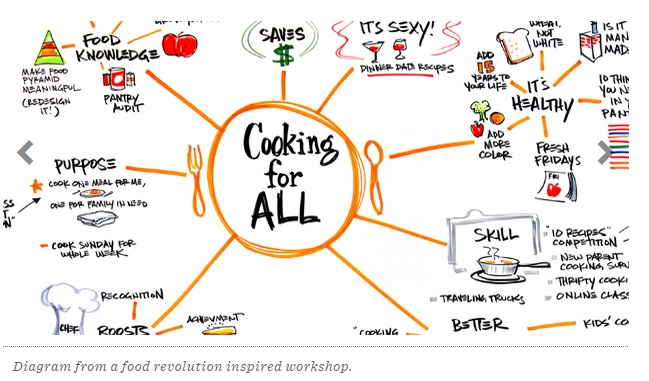 FOOD
KNOWLEDGE
MAKE FOOD
PYRAMID
MEANINGFUL
(REDESIGN
IT!)
PANTRY
AUDIT
SAVES
$
IT'S SEXY!
DINNER DATE RECIPES
WHEAT,
NOT
WHITE
IS IT
MAN
MAD
ADD
15
YEARS TO
YOUR LIFE
IT'S
HEALTHY
10 THIN
YOU N
IN Y
PANT
ADD
MORE
COLOR
FRESH
FRIDAYS
FRI
Cooking
for
ALL
PURPOSE
COOK ONE MEAL FOR ME,
ONE FOR FAMILY IN NEED
COOK SUNDAY FOR
WHOLE WEEK
SS
T,
N"
SKILL
"10 RECIPES"
COMPETITION
NEW PARENT
COOKING, SUR
THRIFTY COOKI
ONLINE CLASS
TRAVELING TRUCKS
RECOGNITION
CHEF
ROOSTS
ACHIEVMENT
"COOKING
BETTER
KIDS' CO
Diagram from a food revolution inspired workshop.